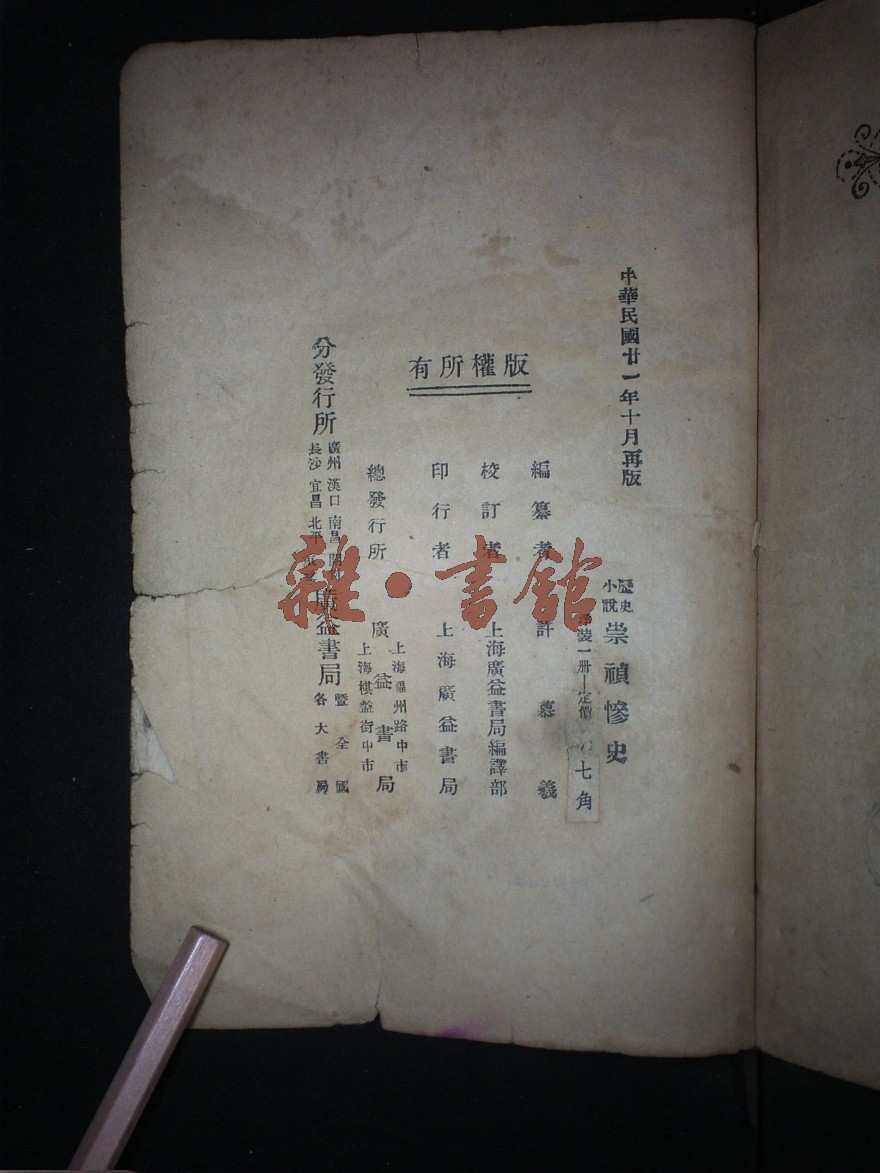 中華民國廿一年十月再版
歷史
小說
崇禎慘史
裝一册—定價
七角
版權所有
編纂者 計慕羲
校訂者 上海廣益書局編譯部
印行者 上海廣益書局
總發行所
上海福州路中市
廣益書局
上海棋盤街中市
分發行所
廣州 漢口 南昌
長沙 宜昌 北平
廣益書局
暨全國
各大書局
雜·書館